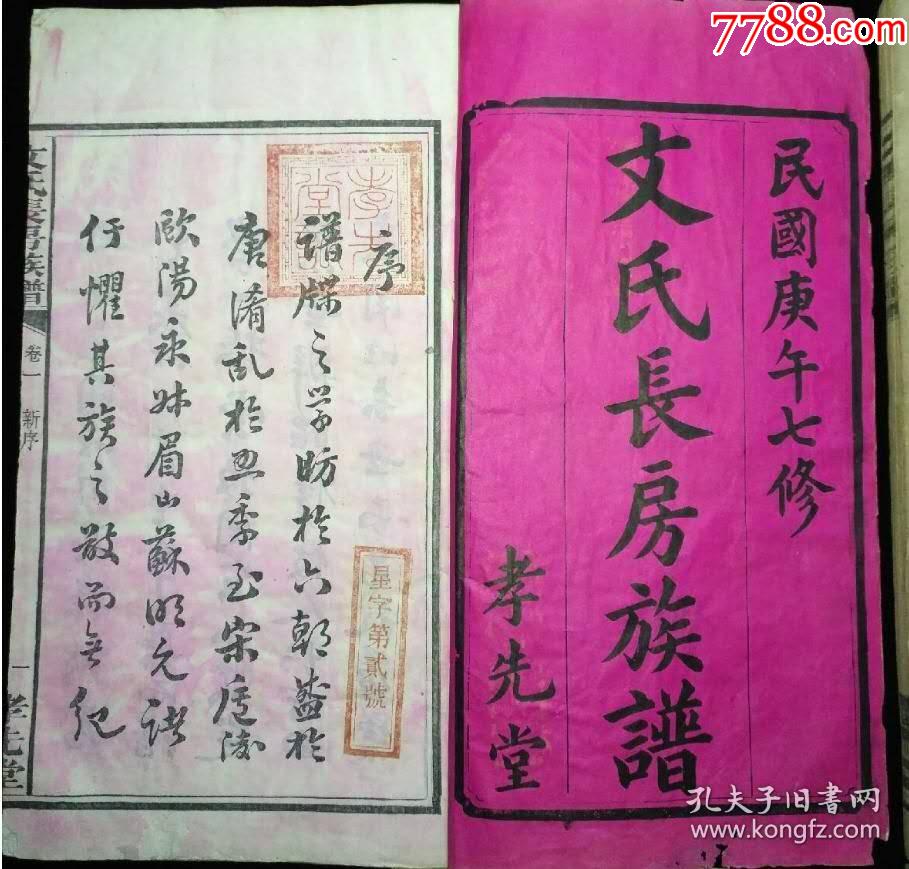 7788.com
民國庚午七修
文氏長房族譜
孝先堂
孝先堂
序
譜牒之学昉於六朝盛於
唐淆乱於五季至宋廬陵
歐陽永叔眉山蘇明允諸
人懼其族之散而無紀
星字第貳號
文氏長房族譜
卷一
新序
一
孝先堂
孔夫子旧書网
www.kongfz.com